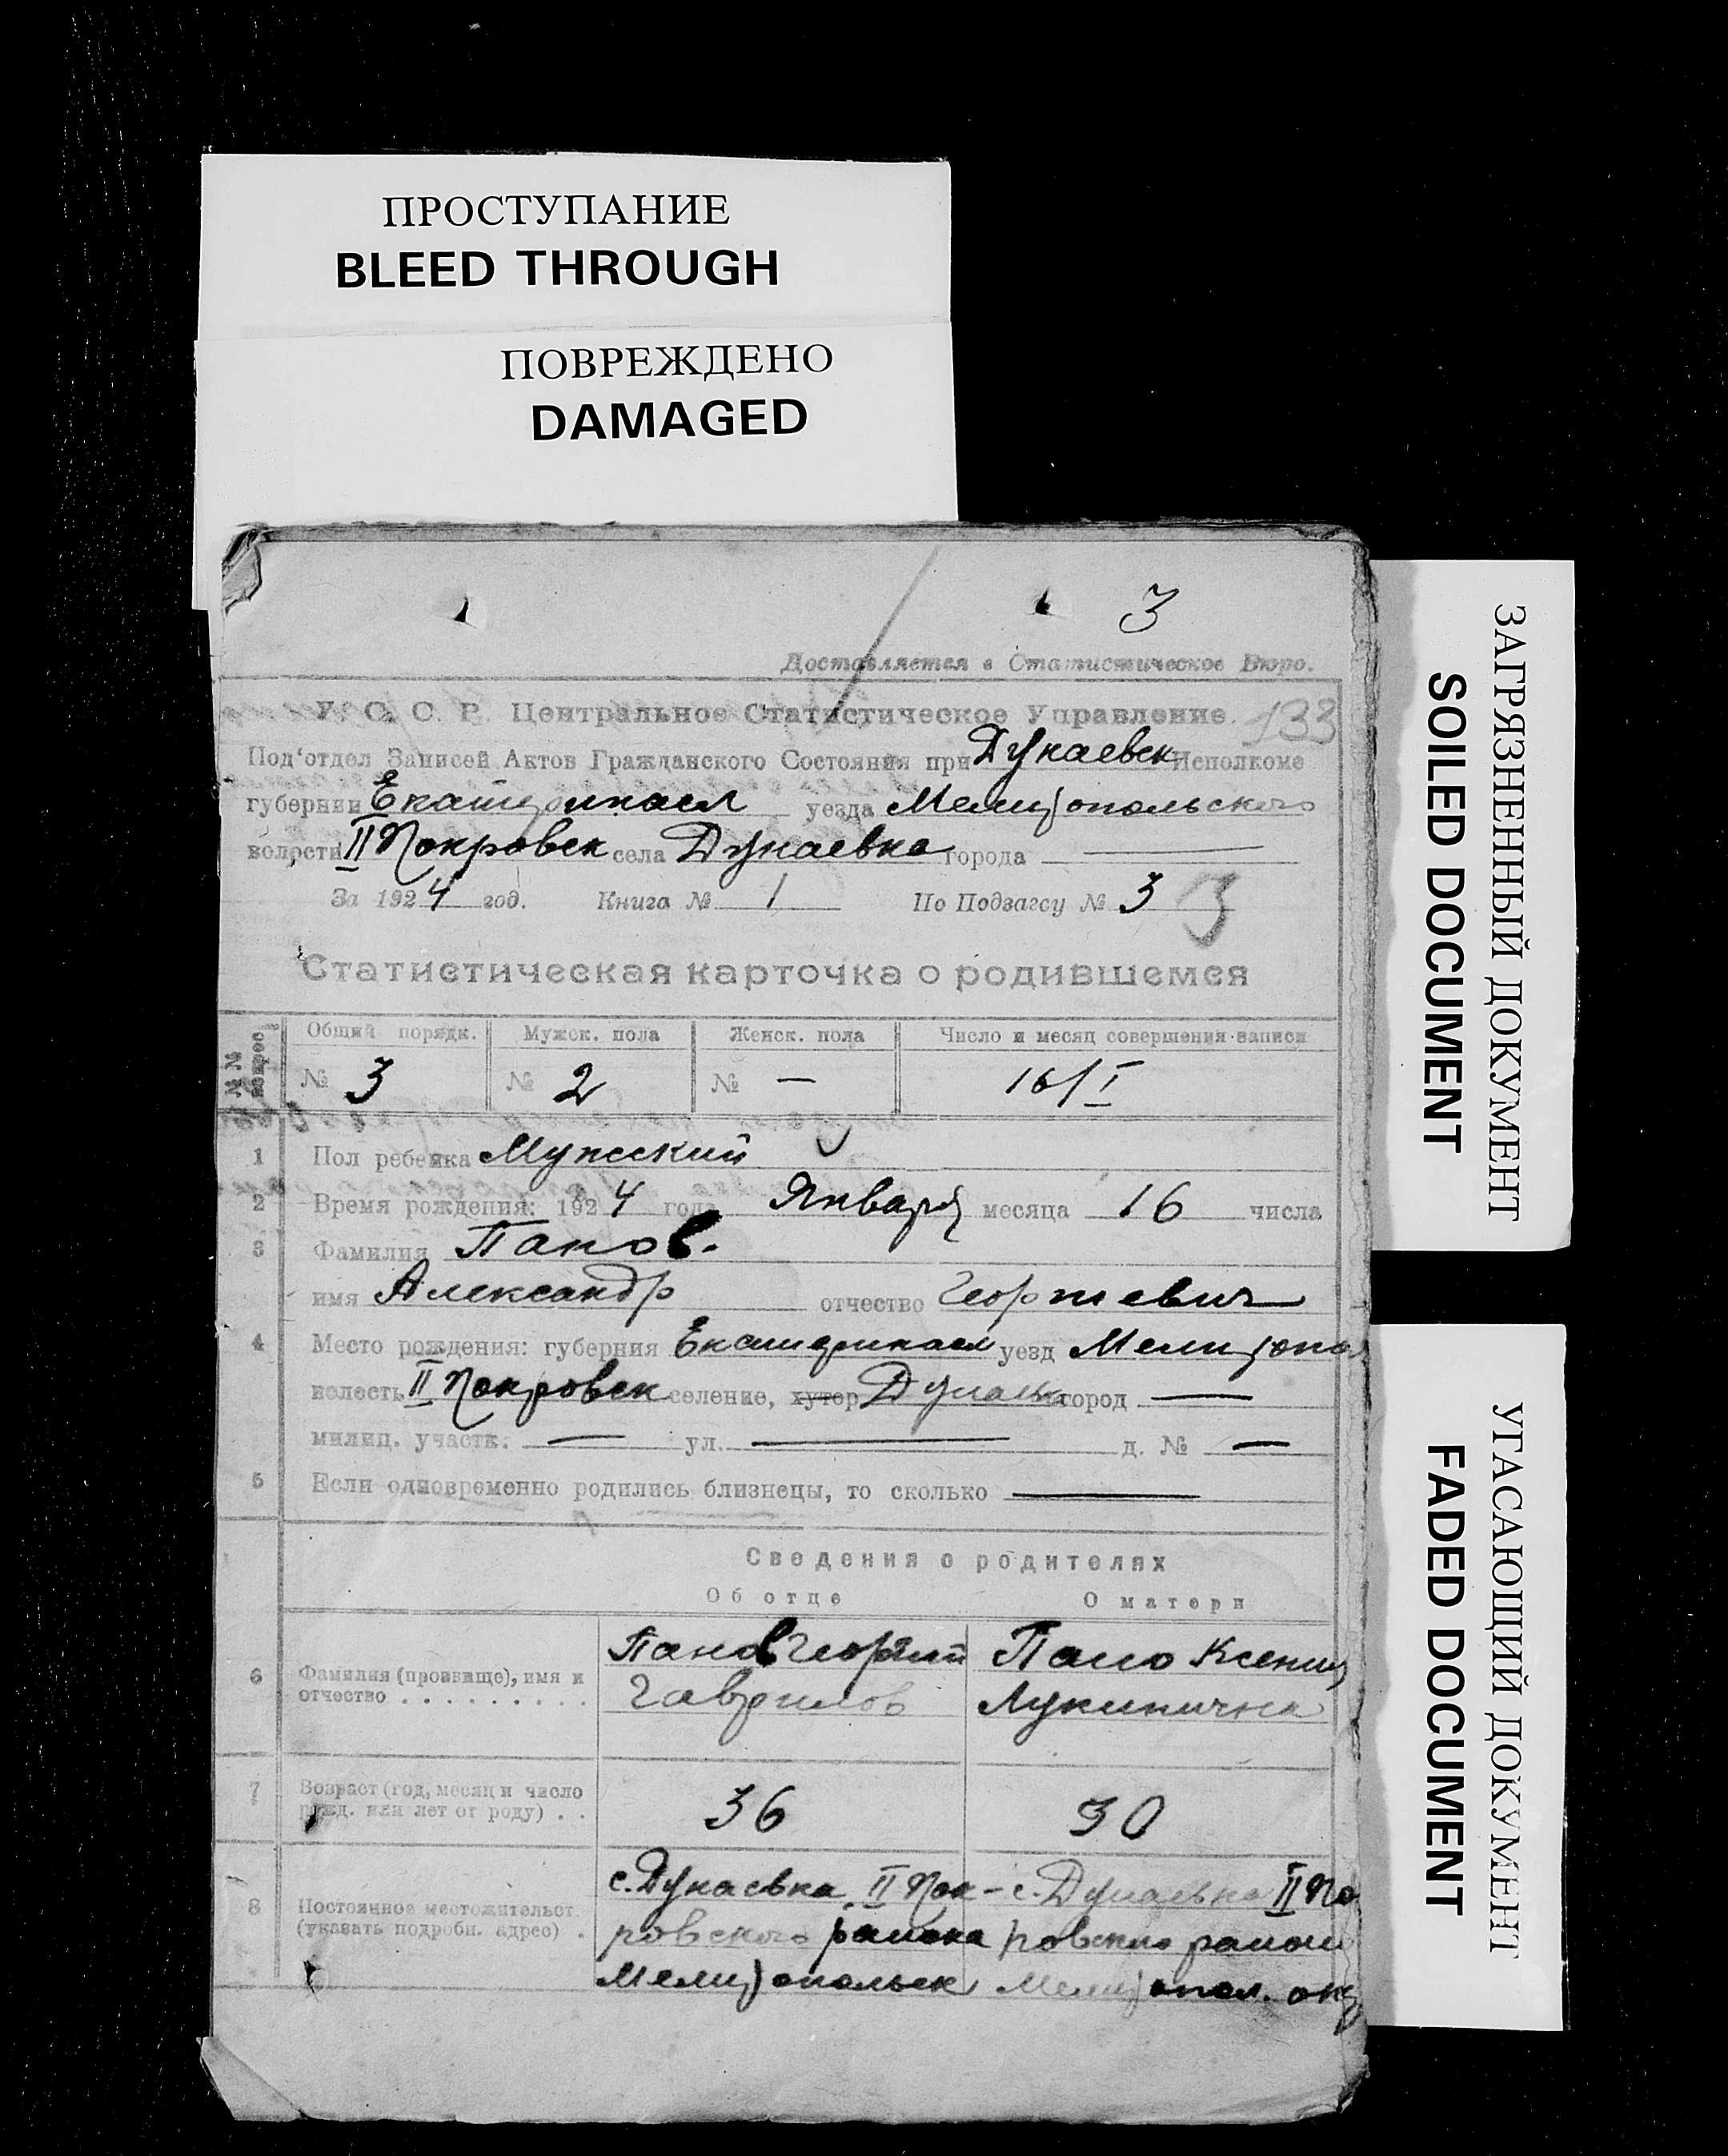 ПРОСТУПАНИЕ
BLEED THROUGH
ПОВРЕЖДЕНО
DAMAGED
3
Доставляется в Статистическое Бюро.
У. С. С. Р. Центральное Статистическое Управление. 133
Под'отдел Записей Актов Гражданского Состояния при Дунаевск Исполкоме
губернии Екатеринасл уезда Мелитопольского
волости II Покровск села Дунаевка города —
За 1924 год. Книга № 1 По Подзагсу № 3 3
Статистическая карточка о родившемся
№№ вопрос
Общий порядк. Мужск. пола Женск. пола Число и месяц совершения записи
№ 3 № 2 № — 16/I
1 Пол ребенка Мужеский
2 Время рождения: 1924 года Января месяца 16 числа
3 Фамилия Панов.
имя Александр отчество Георгиевич
4 Место рождения: губерния Екатеринасл уезд Мелитопол
волость II Покровск селение, хутор Дунаевка город —
милиц. участк. — ул. — д. № —
5 Если одновременно родились близнецы, то сколько —
Сведения о родителях
Об отце О матери
6 Фамилия (прозвище), имя и отчество . . . . . . . . . .
Панов Георгий
Гаврилов
Пано Ксения
Лукинична
7 Возраст (год, месяц и число рожд. или лет от роду) . .
36 30
8 Постоянное местожительст. (указать подробн. адрес) .
с. Дунаевка II Пок-
ровского района
Мелитопольск
с. Дунаевка II По
ровского района
Мелитопол. окр
ЗАГРЯЗНЕННЫЙ ДОКУМЕНТ
SOILED DOCUMENT
УГАСАЮЩИЙ ДОКУМЕНТ
FADED DOCUMENT